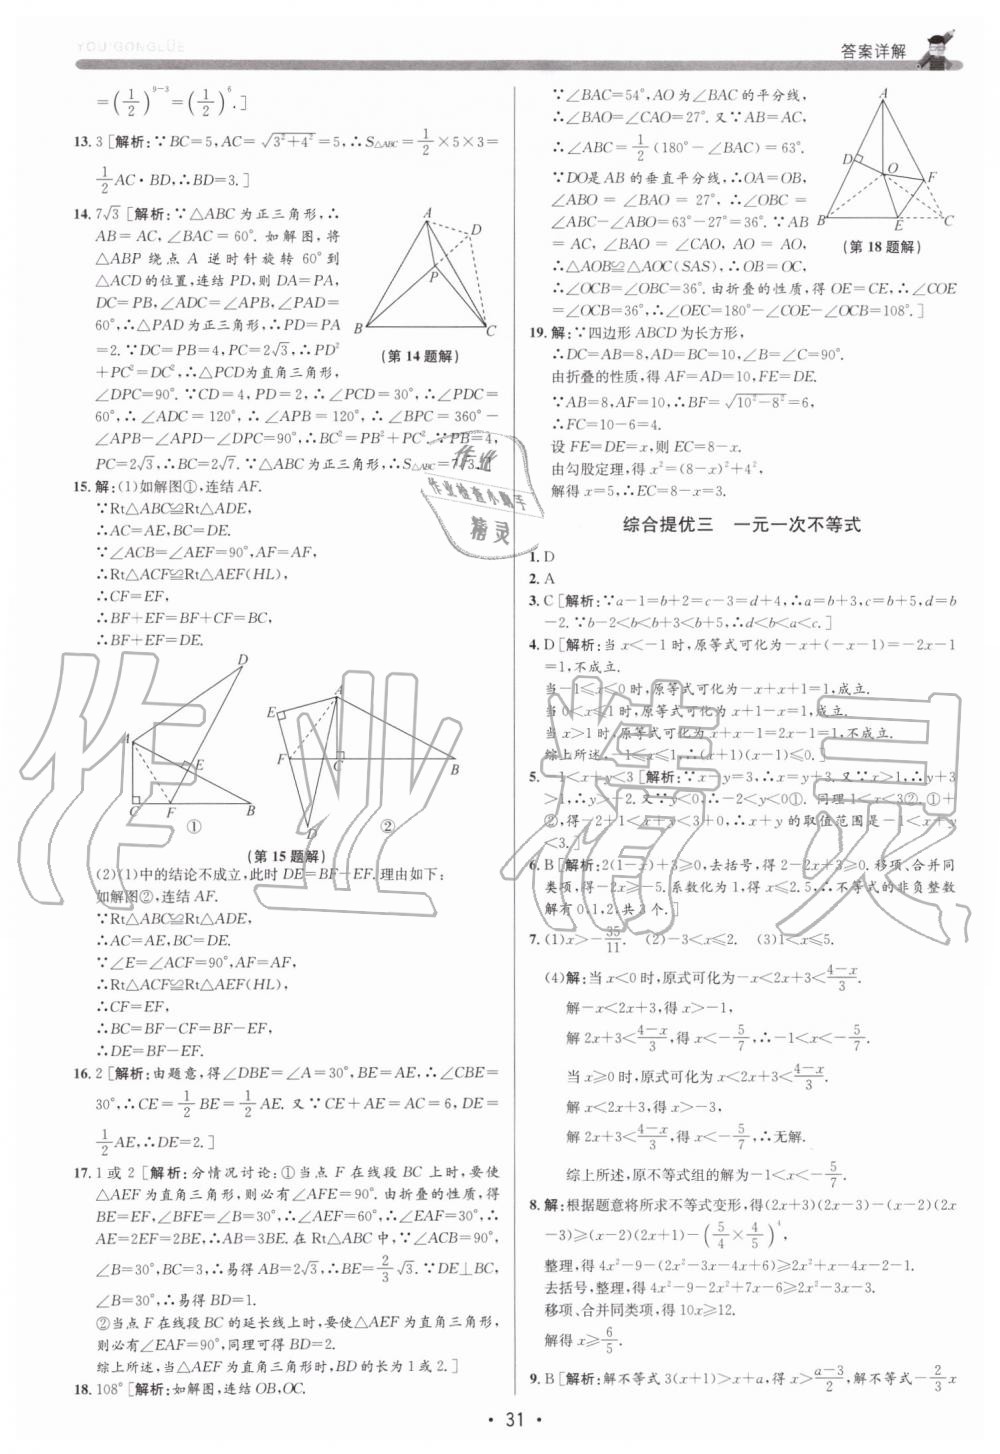 YOU GONGLÜE
答案详解
=(1/2)^{9-3}=(1/2)^6.]
13. 3 [解析:∵BC=5,AC=√(3²+4²)=5,∴S△ABC=1/2×5×3=
1/2AC·BD,∴BD=3.]
14. 7√3 [解析:∵△ABC为正三角形,∴
AB=AC,∠BAC=60°.如解图,将
△ABP绕点A逆时针旋转60°到
△ACD的位置,连结PD,则DA=PA,
DC=PB,∠ADC=∠APB,∠PAD=
60°,∴△PAD为正三角形,∴PD=PA
=2.∵DC=PB=4,PC=2√3,∴PD²
+PC²=DC²,∴△PCD为直角三角形,
∠DPC=90°.∵CD=4,PD=2,∴∠PCD=30°,∴∠PDC=
60°,∴∠ADC=120°,∴∠APB=120°,∴∠BPC=360°-
∠APB-∠APD-∠DPC=90°,∴BC²=PB²+PC².∵PB=4,
PC=2√3,∴BC=2√7.∵△ABC为正三角形,∴S△ABC=7√3.]
A
D
P
B
C
(第14题解)
15. 解:(1)如解图①,连结AF.
∵Rt△ABC≌Rt△ADE,
∴AC=AE,BC=DE.
∵∠ACB=∠AEF=90°,AF=AF,
∴Rt△ACF≌Rt△AEF(HL),
∴CF=EF,
∴BF+EF=BF+CF=BC,
∴BF+EF=DE.
D
A
E
C F B
①
A
E
F
C
B
D
②
(第15题解)
(2)(1)中的结论不成立,此时DE=BF-EF.理由如下:
如解图②,连结AF.
∵Rt△ABC≌Rt△ADE,
∴AC=AE,BC=DE.
∵∠E=∠ACF=90°,AF=AF,
∴Rt△ACF≌Rt△AEF(HL),
∴CF=EF,
∴BC=BF-CF=BF-EF,
∴DE=BF-EF.
16. 2 [解析:由题意,得∠DBE=∠A=30°,BE=AE,∴∠CBE=
30°,∴CE=1/2BE=1/2AE.又∵CE+AE=AC=6,DE=
1/2AE,∴DE=2.]
17. 1或2 [解析:分情况讨论:①当点F在线段BC上时,要使
△AEF为直角三角形,则必有∠AFE=90°.由折叠的性质,得
BE=EF,∠BFE=∠B=30°,∴∠AEF=60°,∴∠EAF=30°,∴
AE=2EF=2BE,∴AB=3BE.在Rt△ABC中,∵∠ACB=90°,
∠B=30°,BC=3,∴易得AB=2√3,∴BE=2/3√3.∵DE⊥BC,
∠B=30°,∴易得BD=1.
②当点F在线段BC的延长线上时,要使△AEF为直角三角形,
则必有∠EAF=90°,同理可得BD=2.
综上所述,当△AEF为直角三角形时,BD的长为1或2.]
18. 108° [解析:如解图,连结OB,OC.
∵∠BAC=54°,AO为∠BAC的平分线,
∴∠BAO=∠CAO=27°.又∵AB=AC,
∴∠ABC=1/2(180°-∠BAC)=63°.
∵DO是AB的垂直平分线,∴OA=OB,
∠ABO=∠BAO=27°,∴∠OBC=
∠ABC-∠ABO=63°-27°=36°.∵AB
=AC,∠BAO=∠CAO,AO=AO,
∴△AOB≌△AOC(SAS),∴OB=OC,
∴∠OCB=∠OBC=36°.由折叠的性质,得OE=CE,∴∠COE
=∠OCB=36°,∴∠OEC=180°-∠COE-∠OCB=108°.]
A
D
O
F
B
E
C
(第18题解)
19. 解:∵四边形ABCD为长方形,
∴DC=AB=8,AD=BC=10,∠B=∠C=90°.
由折叠的性质,得AF=AD=10,FE=DE.
∵AB=8,AF=10,∴BF=√(10²-8²)=6,
∴FC=10-6=4.
设FE=DE=x,则EC=8-x.
由勾股定理,得x²=(8-x)²+4²,
解得x=5,∴EC=8-x=3.
综合提优三 一元一次不等式
1. D
2. A
3. C [解析:∵a-1=b+2=c-3=d+4,∴a=b+3,c=b+5,d=b
-2.∵b-2<b<b+3<b+5,∴d<b<a<c.]
4. D [解析:当x<-1时,原等式可化为-x+(-x-1)=-2x-1
=1,不成立.
当-1≤x≤0时,原等式可化为-x+x+1=1,成立.
当0<x≤1时,原等式可化为x+1-x=1,成立.
当x>1时,原等式可化为x+x-1=2x-1=1,不成立.
综上所述,-1≤x≤1,∴(x+1)(x-1)≤0.]
5. -1<x+y<3 [解析:∵x-y=3,∴x=y+3.又∵x>1,∴y+3
>1,∴y>-2.又∵y<0,∴-2<y<0①.同理1<x<3②.①+
②,得-2+1<x+y<3+0,∴x+y的取值范围是-1<x+y
<3.]
6. B [解析:2(1-x)+3≥0,去括号,得2-2x+3≥0.移项、合并同
类项,得-2x≥-5.系数化为1,得x≤2.5,∴不等式的非负整数
解有0,1,2,共3个.]
7. (1)x>-35/11. (2)-3<x≤2. (3)1<x≤5.
(4)解:当x<0时,原式可化为-x<2x+3<(4-x)/3.
解-x<2x+3,得x>-1,
解2x+3<(4-x)/3,得x<-5/7,∴-1<x<-5/7.
当x≥0时,原式可化为x<2x+3<(4-x)/3.
解x<2x+3,得x>-3,
解2x+3<(4-x)/3,得x<-5/7,∴无解.
综上所述,原不等式组的解为-1<x<-5/7.
8. 解:根据题意将所求不等式变形,得(2x+3)(2x-3)-(x-2)(2x
-3)≥(x-2)(2x+1)-(5/4×4/5)^4,
整理,得4x²-9-(2x²-3x-4x+6)≥2x²+x-4x-2-1.
去括号,整理,得4x²-9-2x²+7x-6≥2x²-3x-3.
移项、合并同类项,得10x≥12.
解得x≥6/5.
9. B [解析:解不等式3(x+1)>x+a,得x>(a-3)/2,解不等式-2/3x
作业
作业检查小助手
精灵
作业精灵
· 31 ·